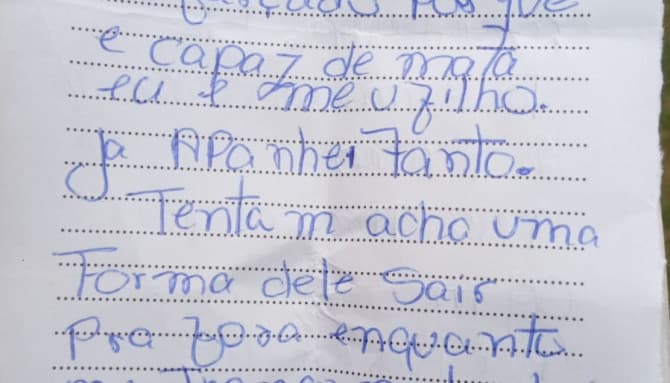 Pos que
e capaz de mata
eu e o meu filho.
ja APanhei Tanto.
Tenta m acha uma
Forma dele Sair
Pra fora enquanto